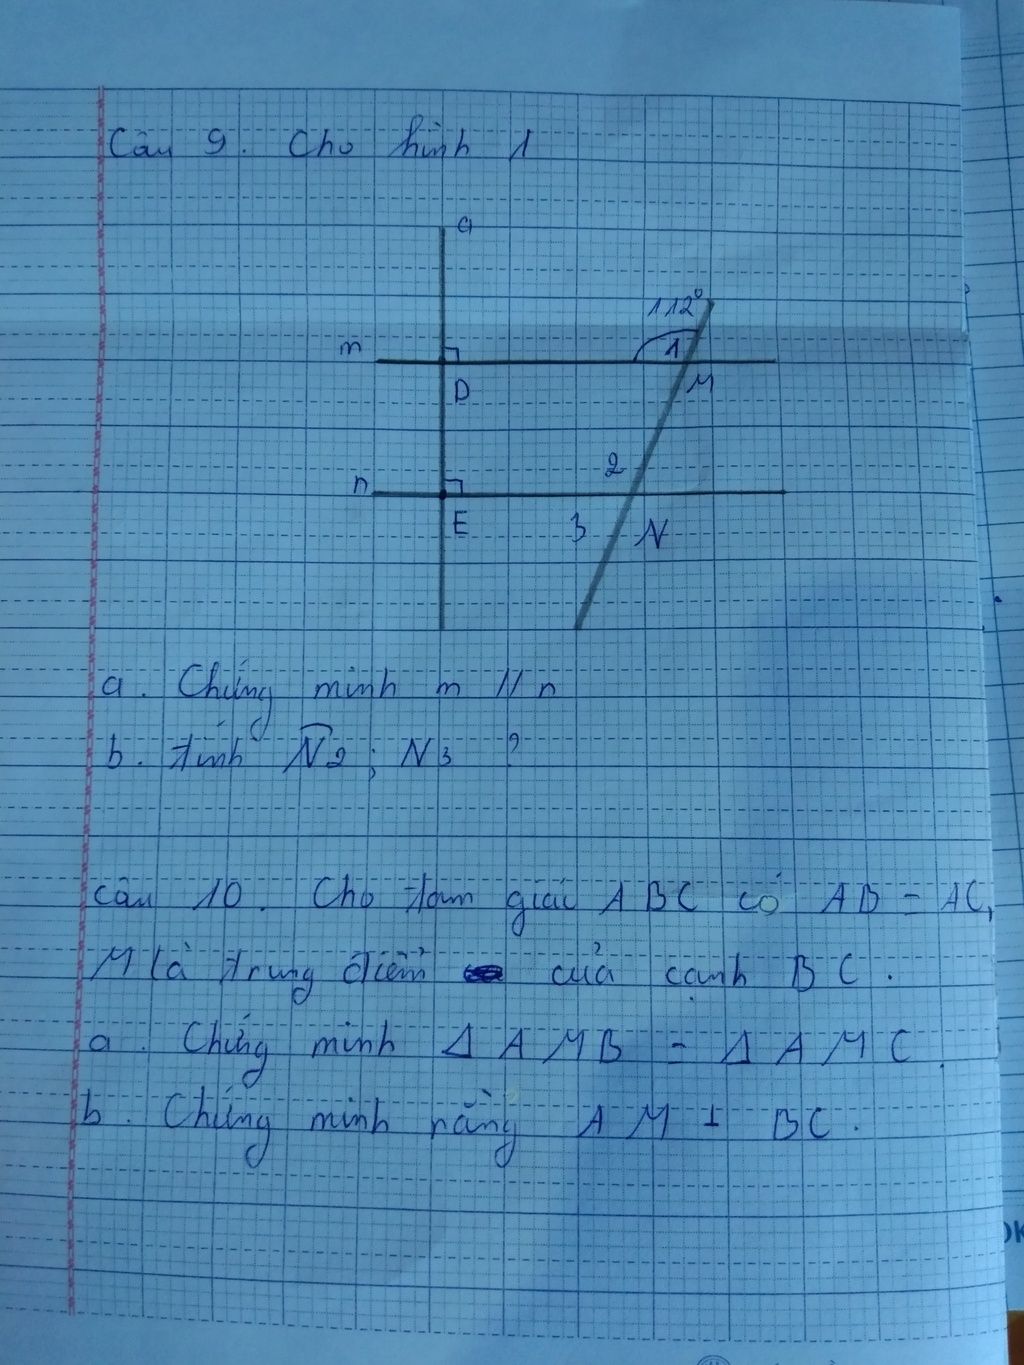 Câu 9. Cho hình 1
a
112°
m
1
D
M
2
n
E
3
N
a. Chứng minh m // n
b. tính N2; N3 ?
Câu 10. Cho tam giác ABC có AB = AC,
M là trung điểm của cạnh BC.
a. Chứng minh Δ AMB = Δ AMC.
b. Chứng minh rằng AM ⊥ BC.